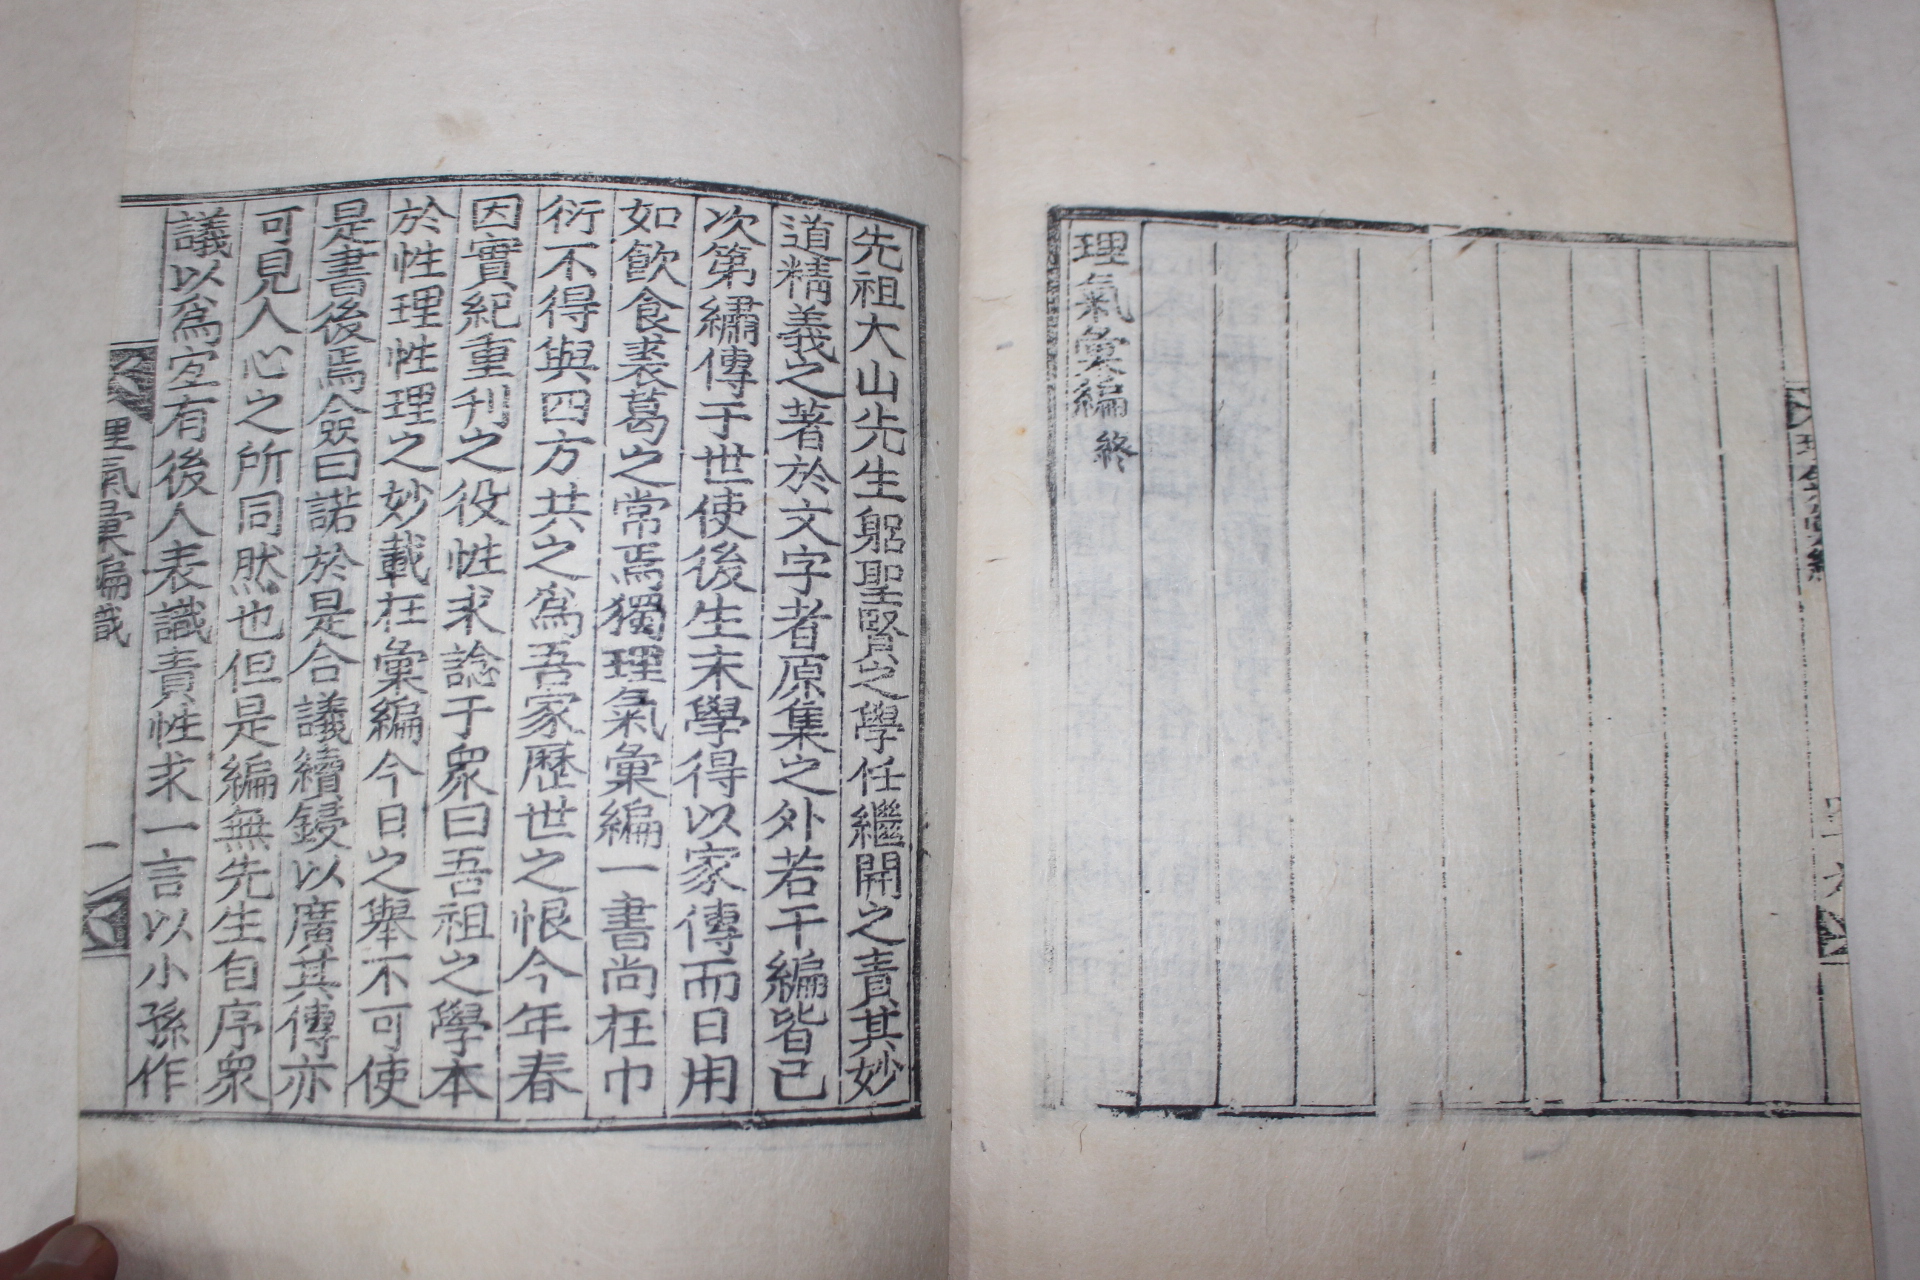 理氣彙編 終
先祖大山先生躬聖賢之學任繼開之責其妙
道精義之著於文字者原集之外若干編皆已
次第繡傳于世使後生末學得以家傳而日用
如飮食裘葛之常焉獨理氣彙編一書尚在巾
衍不得與四方共之爲吾家歷世之恨今年春
因實紀重刊之役性求諗于眾曰吾祖之學本
於性理性理之妙載在彙編今日之擧不可使
是書後焉僉曰諾於是合議續鋟以廣其傳亦
可見人心之所同然也但是編無先生自序眾
議以爲宜有後人表識責性求一言以小孫作
理氣彙編識
一